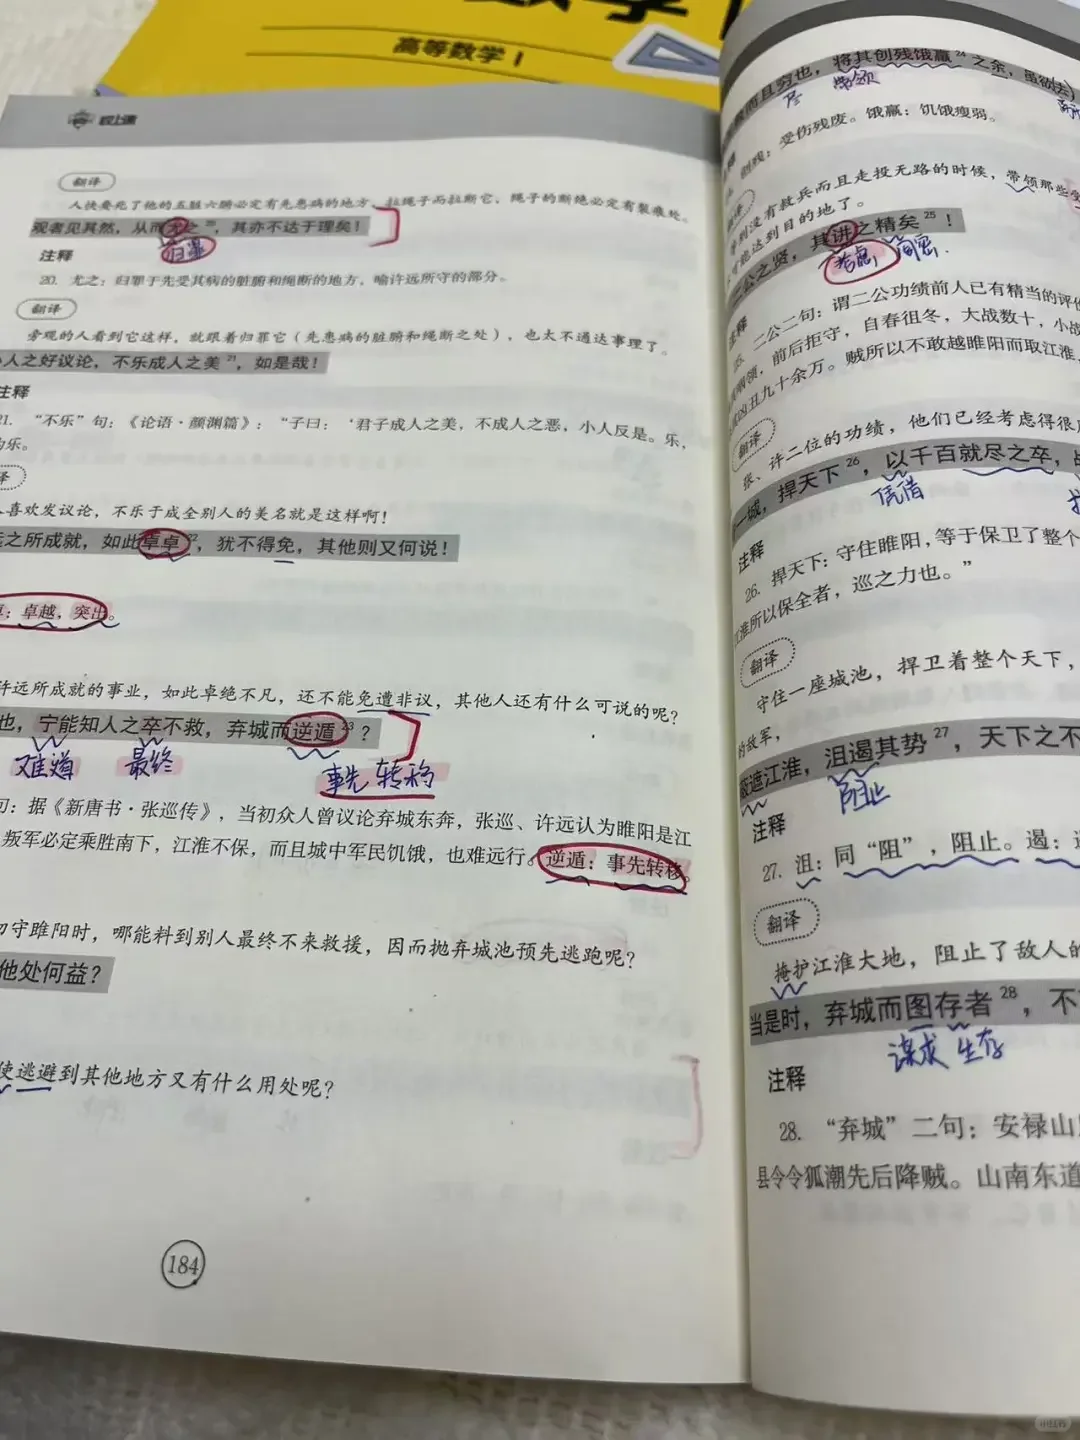 高等数学 I
翻译
人快要死了他的五脏六腑必定有先患病的地方，拉绳子而拉断它，绳子的断绝必定有裂痕处。
观者见其然，从而尤之20，其亦不达于理矣！
归罪
注释
20. 尤之：归罪于先受其病的脏腑和绳断的地方，喻许远所守的部分。
翻译
旁观的人看到它这样，就跟着归罪它（先患病的脏腑和绳断之处），也太不通达事理了。
人之好议论，不乐成人之美21，如是哉！
注释
21. “不乐”句：《论语·颜渊篇》：“子曰：‘君子成人之美，不成人之恶，小人反是。乐，
的乐。
译
喜欢发议论，不乐于成全别人的美名就是这样啊！
之所成就，如此卓卓22，犹不得免，其他则又何说！
：卓越，突出。
许远所成就的事业，如此卓绝不凡，还不能免遭非议，其他人还有什么可说的呢？
也，宁能知人之卒不救，弃城而逆遁23？
难道 最终 事先 转移
句：据《新唐书·张巡传》，当初众人曾议论弃城东奔，张巡、许远认为睢阳是江
叛军必定乘胜南下，江淮不保，而且城中军民饥饿，也难远行。逆遁：事先转移。
初守睢阳时，哪能料到别人最终不来救援，因而抛弃城池预先逃跑呢？
他处何益？
使逃避到其他地方又有什么用处呢？
184
而且穷也，将其创残饿羸24之余，虽欲去
尽 带领
残：受伤残废。饿羸：饥饿瘦弱。
没有救兵而且走投无路的时候，带领那些
可能达到目的地了。
二公之贤，其讲之精矣25！
考虑 周密.
注释
25. 二公二句：谓二公功绩前人已有精当的评
咽领，前后拒守，自春徂冬，大战数十，小战
凶丑九十余万。贼所以不敢越睢阳而取江淮，
翻译
张、许二位的功绩，他们已经考虑得很
一城，捍天下26，以千百就尽之卒，
凭借
注释
26. 捍天下：守住睢阳，等于保卫了整个
江淮所以保全者，巡之力也。”
翻译
守住一座城池，捍卫着整个天下，
的敌军，
蔽遮江淮，沮遏其势27，天下之不
阻止
注释
27. 沮：同“阻”，阻止。遏：
翻译
掩护江淮大地，阻止了敌人的
当是时，弃城而图存者28，不
谋求 生存
注释
28. “弃城”二句：安禄山
县令令狐潮先后降贼。山南东道